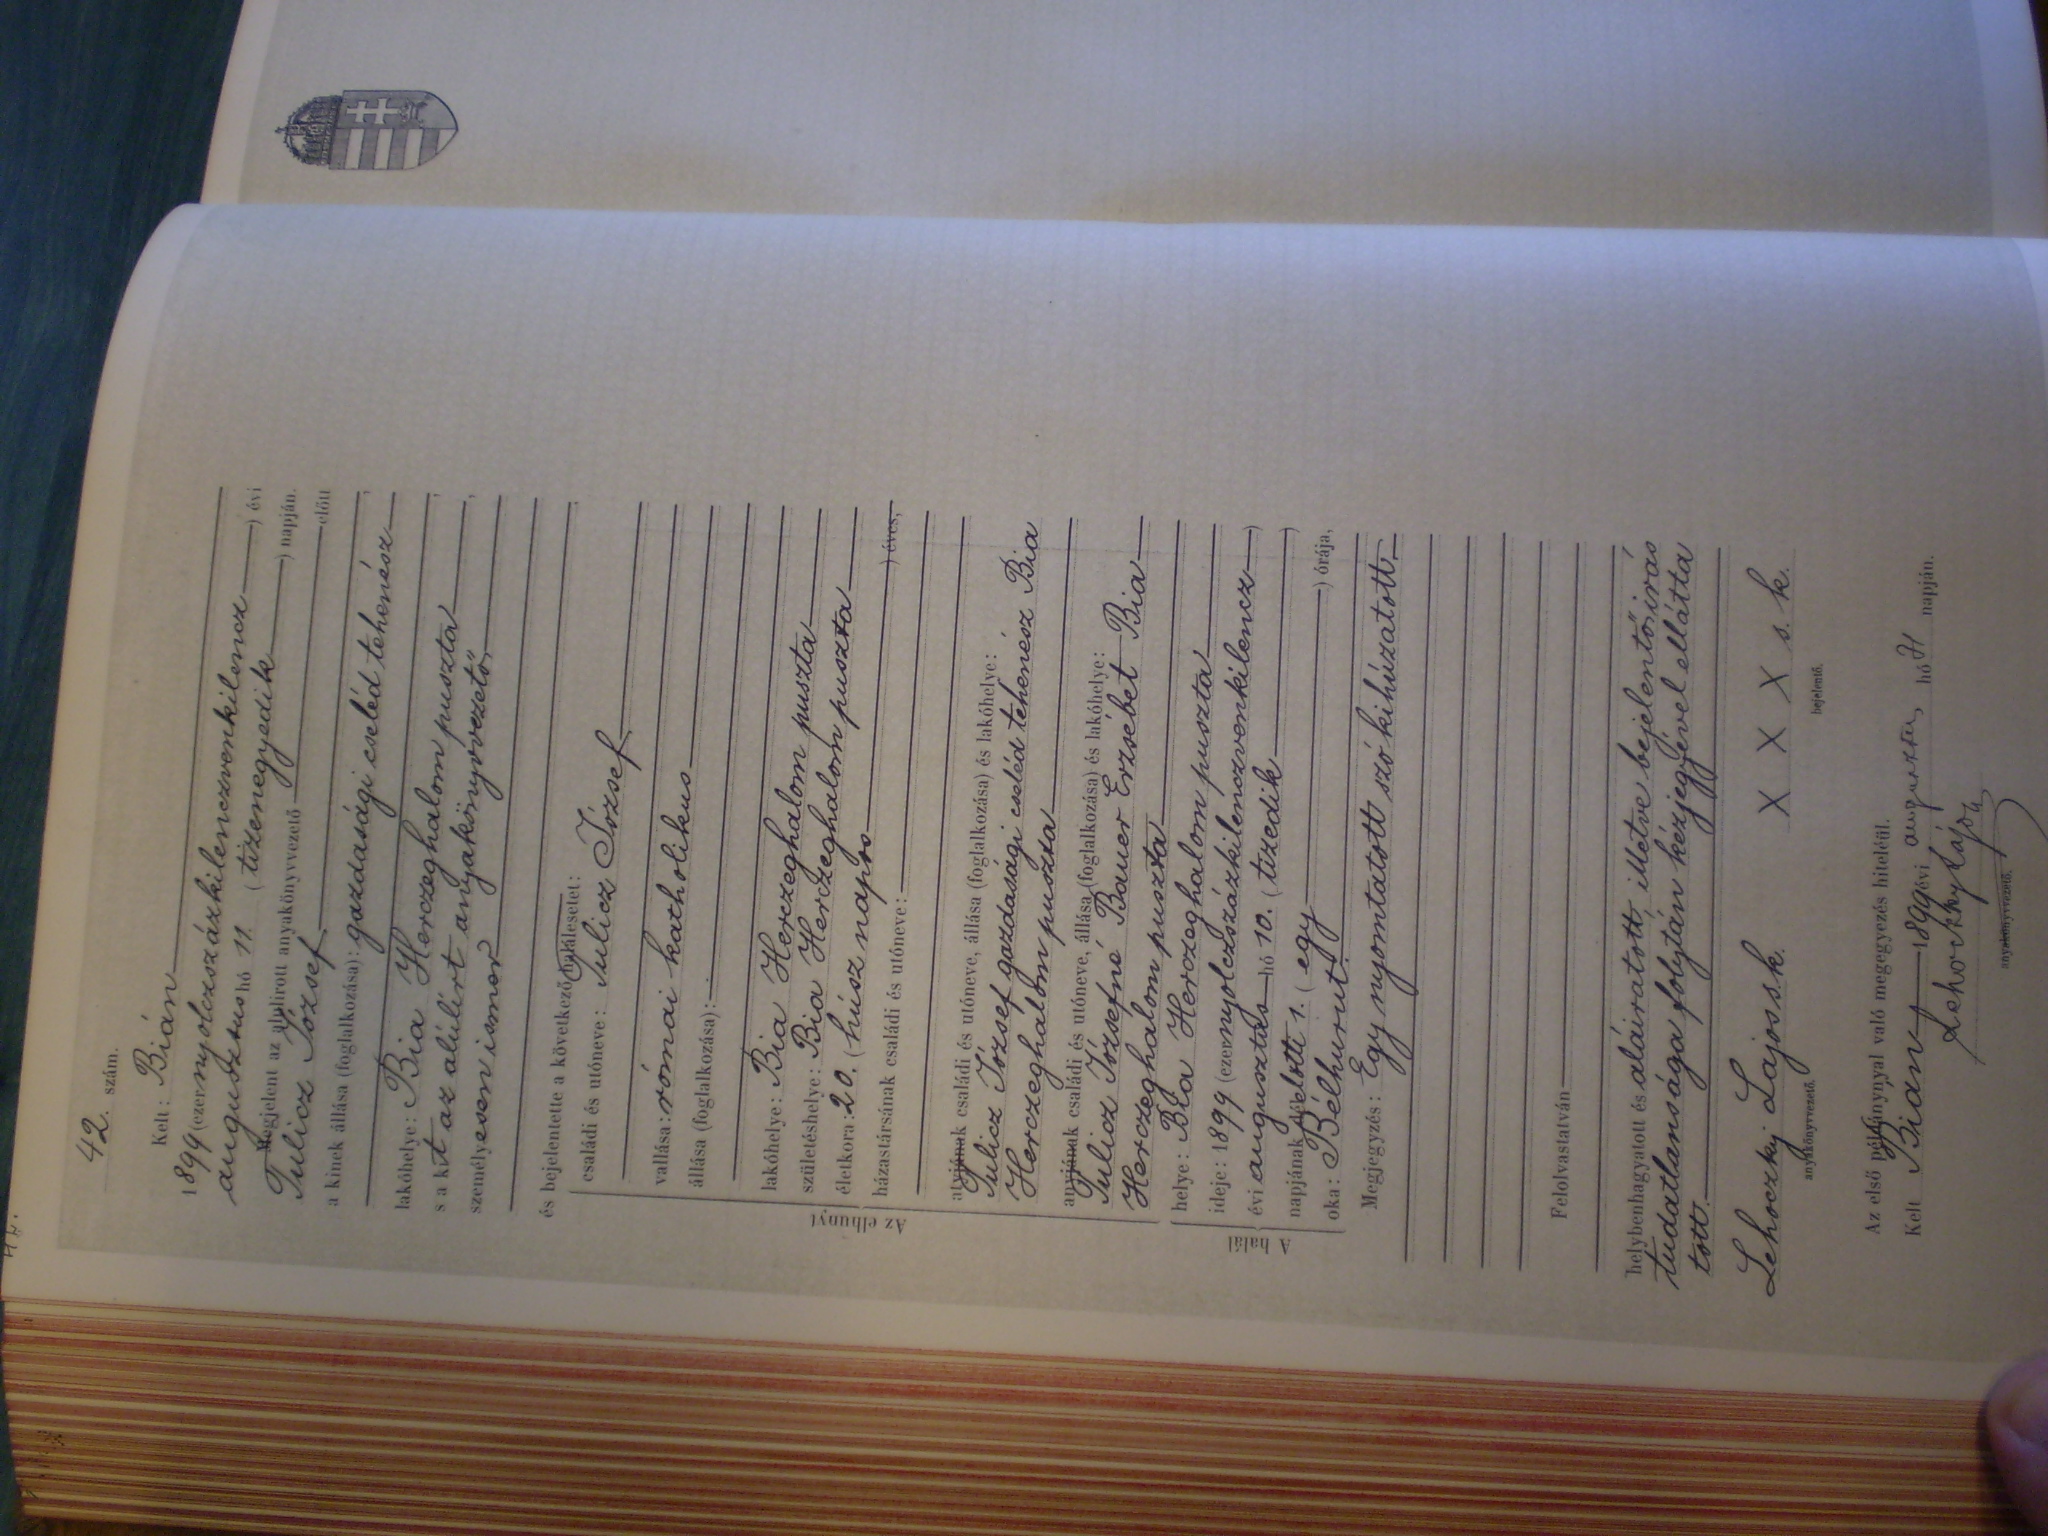 42. szám.
Kelt: Bián
1899 (ezernyolczszázkilenczvenkilencz) évi
augusztus hó 11. (tizenegyedik) napján.
Megjelent az alulirott anyakönyvvezető előtt
Tulicz József
a kinek állása (foglalkozása): gazdasági cseléd tehenész,
lakóhelye: Bia Herczeghalom puszta,
s a kit az alólirt anyakönyvvezető
személyesen ismer,
és bejelentette a következő halálesetet:
családi és utóneve: Tulicz József,
vallása: római katholikus
állása (foglalkozása):
lakóhelye: Bia Herczeghalom puszta
születéshelye: Bia Herczeghalom puszta
életkora: 20. (húsz napos) éves,
házastársának családi és utóneve:
Az elhunyt
atyjának családi és utóneve, állása (foglalkozása) és lakóhelye:
Tulicz József gazdasági cseléd tehenész Bia
Herczeghalom puszta
anyjának családi és utóneve, állása (foglalkozása) és lakóhelye:
Tulicz Józsefné Bauer Erzsébet Bia
Herczeghalom puszta
helye: Bia Herczeghalom puszta
ideje: 1899 (ezernyolczszázkilenczvenkilencz)
évi augusztus hó 10. (tizedik)
napjának délelőtti 1. (egy) órája,
oka: Bélhurut.
A halál
Megjegyzés: Egy nyomtatott szó kihúzatott.
Felolvastatván
helybenhagyatott és aláiratott, illetve bejelentő irás
tudatlansága folytán kézjegyével ellátta
tott.
Lehoczky Lajos s.k. X X X s.k.
anyakönyvvezető. bejelentő.
Az első példánynyal való megegyezés hiteléül.
Kelt Bián 1899 évi augusztus hó napján.
Lehoczky Lajos
anyakönyvvezető.